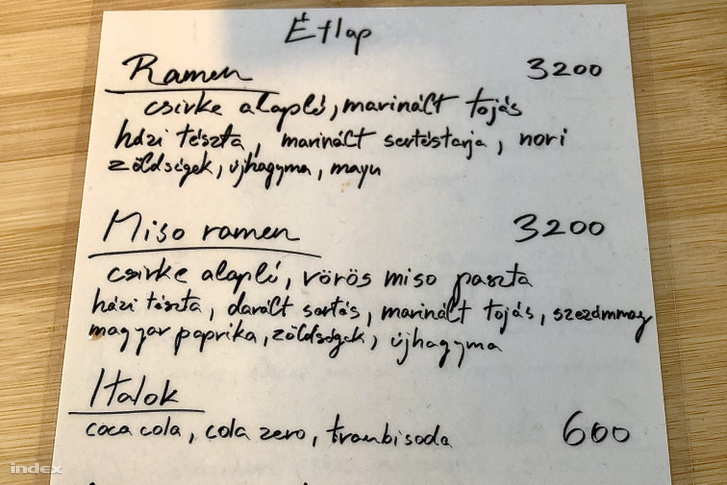 Étlap
Ramen 3200
csirke alaplé, marinált tojás
házi tészta, marinált sertéstarja, nori
zöldségek, újhagyma, mayu
Miso ramen 3200
csirke alaplé, vörös miso paszta
házi tészta, darált sertés, marinált tojás, szezámmag
magyar paprika, zöldségek, újhagyma
Italok
coca cola, cola zero, traubisoda 600
index